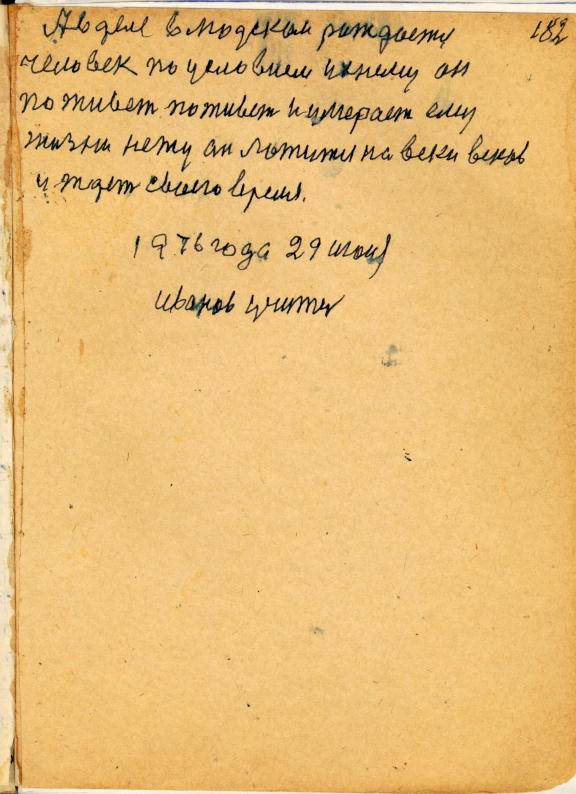 182
А в деле в людском рождается
человек по условием ихнему он
поживет поживет и умерает ему
жизни нету он ложится на веки веков
и ждет своего время.
1976 года 29 июня
Иванов учитель